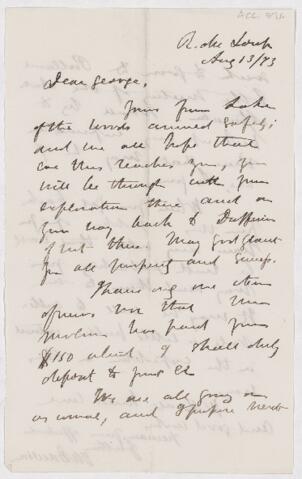 R. du Loup
Aug 13/73
Dear George,
Yours from Lake
of the Woods arrived safely;
and we all hope that
ere this reaches you, you
will be through with your
exploration there and on
your way back to Dufferin
if not there. May God grant
you all prosperity and success.
The only one item
of news is that
has paid your
$150 which I shall duly
deposit to your Cr.
We are all going on
as usual, and I propose next